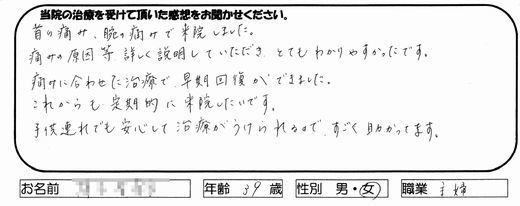 当院の治療を受けて頂いた感想をお聞かせください。
首の痛み、腕の痛みで来院しました。
痛みの原因等、詳しく説明していただき、とてもわかりやすかったです。
痛みに合わせた治療で、早期回復ができました。
これからも定期的に来院したいです。
子供連れでも安心して治療がうけられるので、すごく助かってます。
お名前 年齢 39 歳 性別 男・女 職業 主婦